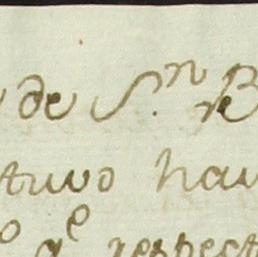 de S.n
tuvo hav
qe respect